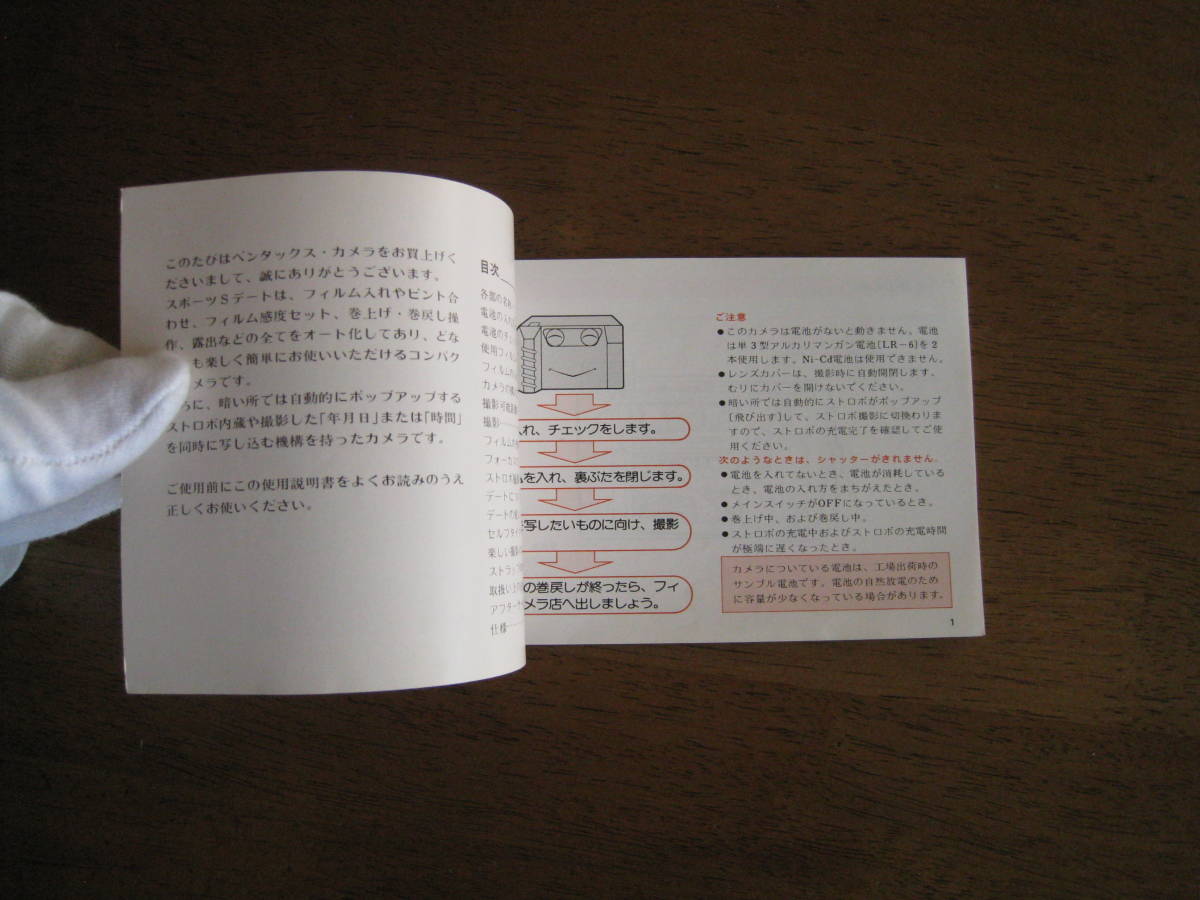 このたびはペンタックス・カメラをお買上げく
ださいまして、誠にありがとうございます。
スポーツSデートは、フィルム入れやピント合
わせ、フィルム感度セット、巻上げ・巻戻し操
作、露出などの全てをオート化してあり、どな
も楽しく簡単にお使いいただけるコンパク
メラです。
らに、暗い所では自動的にポップアップする
ストロボ内蔵や撮影した「年月日」または「時間」
を同時に写し込む機構を持ったカメラです。
ご使用前にこの使用説明書をよくお読みのうえ
正しくお使いください。
目次
各部の名称
電池の入れ
電池のチェ
使用フィル
フィルムの
カメラの構
撮影可能
撮影
フィルム
フォーカス
ストロボ
デートに
デートの
セルフタイ
楽しい撮影
ストラップ
取扱い上
アフター
仕様
入れ、チェックをします。
ムを入れ、裏ぶたを閉じます。
写したいものに向け、撮影
の巻戻しが終ったら、フィ
メラ店へ出しましょう。
ご注意
●このカメラは電池がないと動きません。電池
は単3型アルカリマンガン電池[LR-6]を2
本使用します。Ni-Cd電池は使用できません。
●レンズカバーは、撮影時に自動開閉します。
むりにカバーを開けないでください。
●暗い所では自動的にストロボがポップアップ
[飛び出す]して、ストロボ撮影に切換わりま
すので、ストロボの充電完了を確認してご使
用ください。
次のようなときは、シャッターがきれません。
●電池を入れてないとき、電池が消耗している
とき、電池の入れ方をまちがえたとき。
●メインスイッチがOFFになっているとき。
●巻上げ中、および巻戻し中。
●ストロボの充電中およびストロボの充電時間
が極端に遅くなったとき。
カメラについている電池は、工場出荷時の
サンプル電池です。電池の自然放電のため
に容量が少なくなっている場合があります。
1